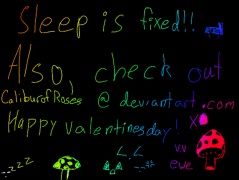 Sleep is fixed!!
Also, check out
CaliburofRoses @ deviantart.com
Happy valentinesday!
v.v
ewe
-.-zzz